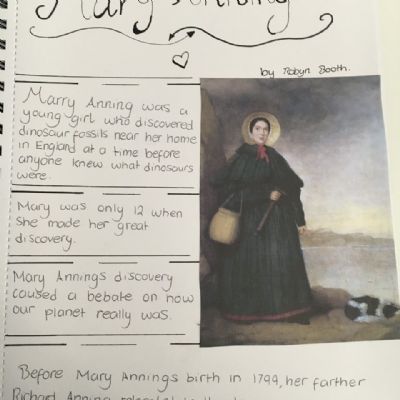 Mary Anning
by Robyn Booth.
Marry Anning was a
young girl who discovered
dinosaur fossils near her home
in England at a time before
anyone knew what dinosaurs
were.
Mary was only 12 when
she made her great
discovery.
Mary Annings discovery
caused a bebate on how
our planet really was.
Before Mary Annings birth in 1799, her farther
Richard Anning